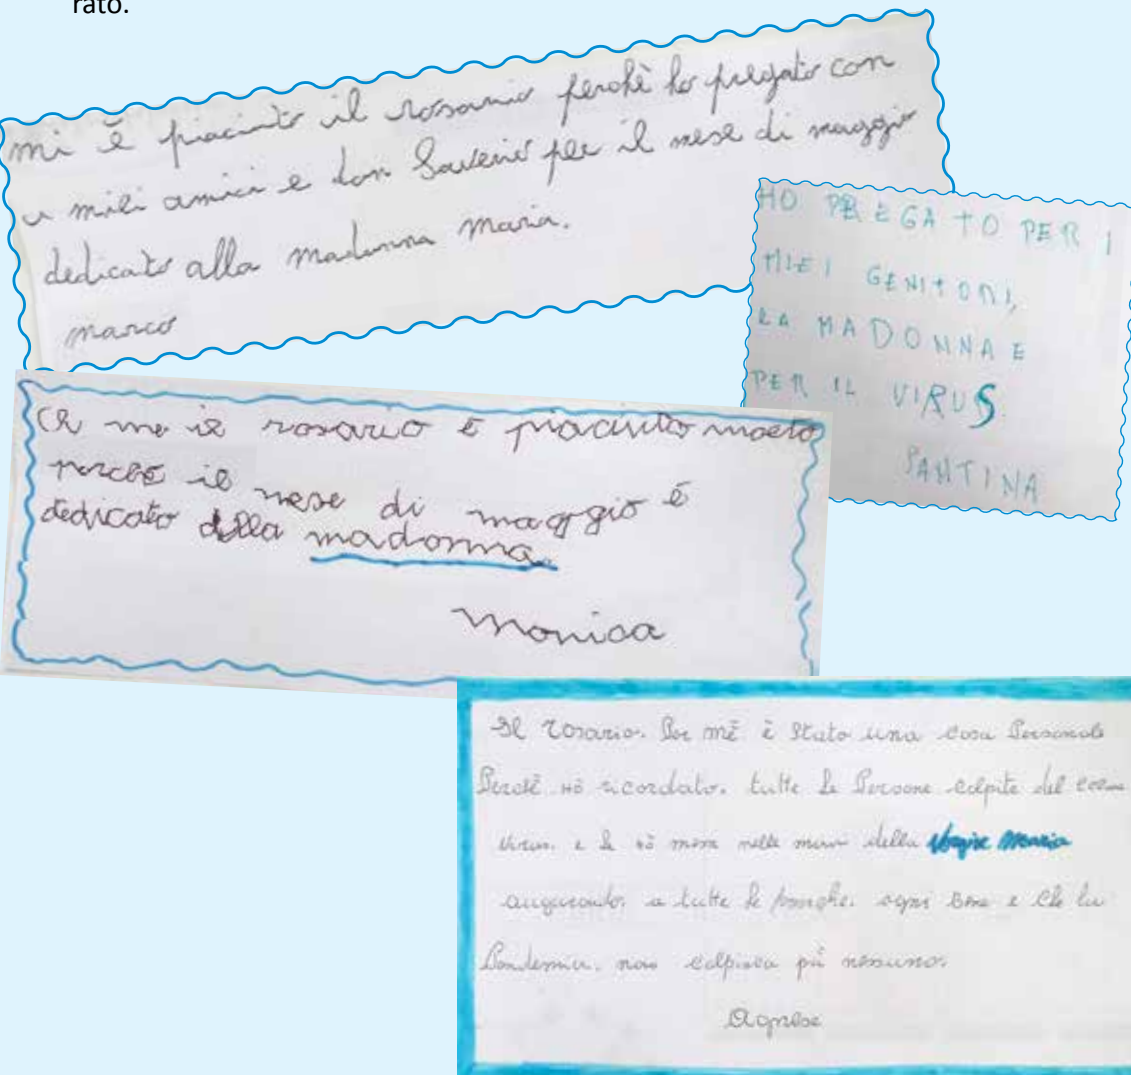 rato.
mi è piaciuto il rosario perchè ho pregato con
i miei amici e don Saverio per il mese di maggio
dedicato alla madonna maria.
marco
HO PREGATO PER I
MIEI GENITORI,
LA MADONNA E
PER IL VIRUS.
SANTINA
A me il rosario è piaciuto molto
perché il mese di maggio é
dedicato della madonna.
monica
Il rosario. Per mè è Stato una cosa Personale
Perchè Hò ricordato. tutte le Persone colpite del
virus. e le hò messe nelle mani della Vergine Maria
augurando. a tutte le famighe. ogni bene e che la
Pandemia. non colpisca più nessuno.
Agnese